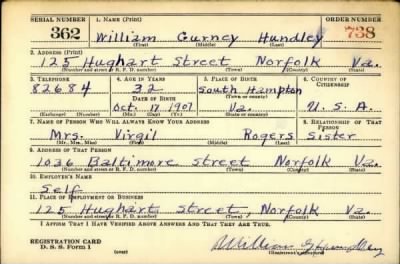 SERIAL NUMBER 1. NAME (Print) ORDER NUMBER
362 William Gurney Hundley 738
(First) (Middle) (Last)
2. ADDRESS (Print)
125 Hughart Street Norfolk Va.
(Number and street or R. F. D. number) (Town) (County) (State)
3. TELEPHONE 4. AGE IN YEARS 5. PLACE OF BIRTH 6. COUNTRY OF CITIZENSHIP
82684 32 South Hampton
DATE OF BIRTH (Town or county)
Oct. 17 1907 Va. U. S. A.
(Exchange) (Number) (Mo.) (Day) (Yr.) (State or country)
7. NAME OF PERSON WHO WILL ALWAYS KNOW YOUR ADDRESS 8. RELATIONSHIP OF THAT PERSON
Mrs. Virgil Rogers Sister
(Mr., Mrs., Miss) (First) (Middle) (Last)
9. ADDRESS OF THAT PERSON
1036 Baltimore street Norfolk Va.
(Number and street or R. F. D. number) (Town) (County) (State)
10. EMPLOYER'S NAME
Self
11. PLACE OF EMPLOYMENT OR BUSINESS
125 Hughart Street, Norfolk Va.
(Number and street or R. F. D. number) (Town) (County) (State)
I AFFIRM THAT I HAVE VERIFIED ABOVE ANSWERS AND THAT THEY ARE TRUE.
REGISTRATION CARD
D. S. S. Form 1 (over) William G Hundley
(Registrant's signature)